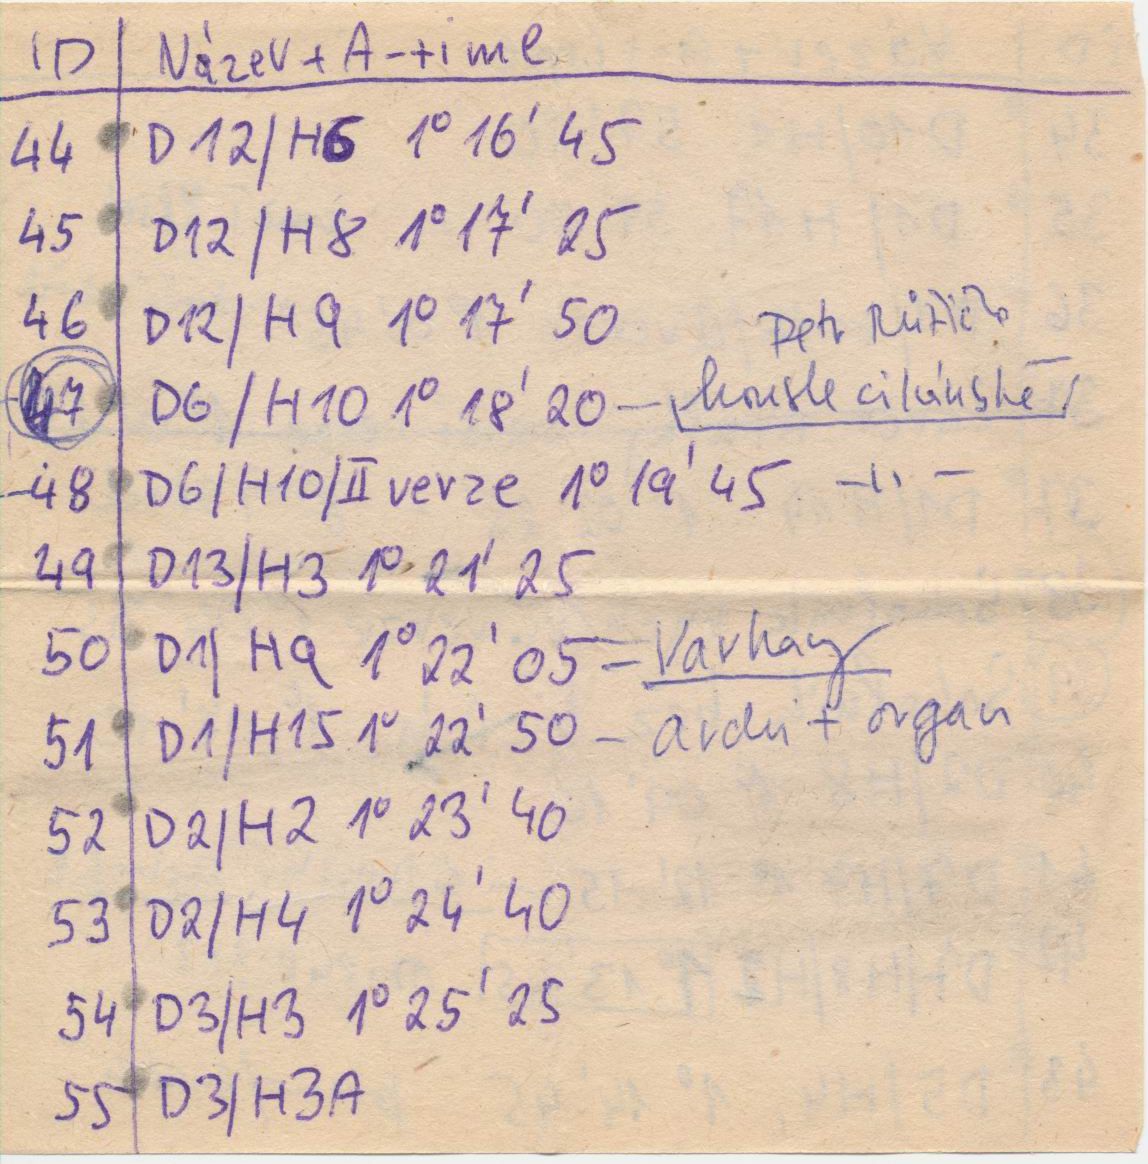 ID Název + A-time
44 D12/H6 1° 16' 45
45 D12/H8 1° 17' 25
46 D12/H9 1° 17' 50
Petr Růžička
47 D6/H10 1° 18' 20 — housle cikánské
-48 D6/H10/II verze 1° 19' 45 -"-
49 D13/H3 1° 21' 25
50 D1/H9 1° 22' 05 = Varhany
51 D1/H15 1° 22' 50 - + organ
52 D2/H2 1° 23' 40
53 D2/H4 1° 24' 40
54 D3/H3 1° 25' 25
55 D3/H3A